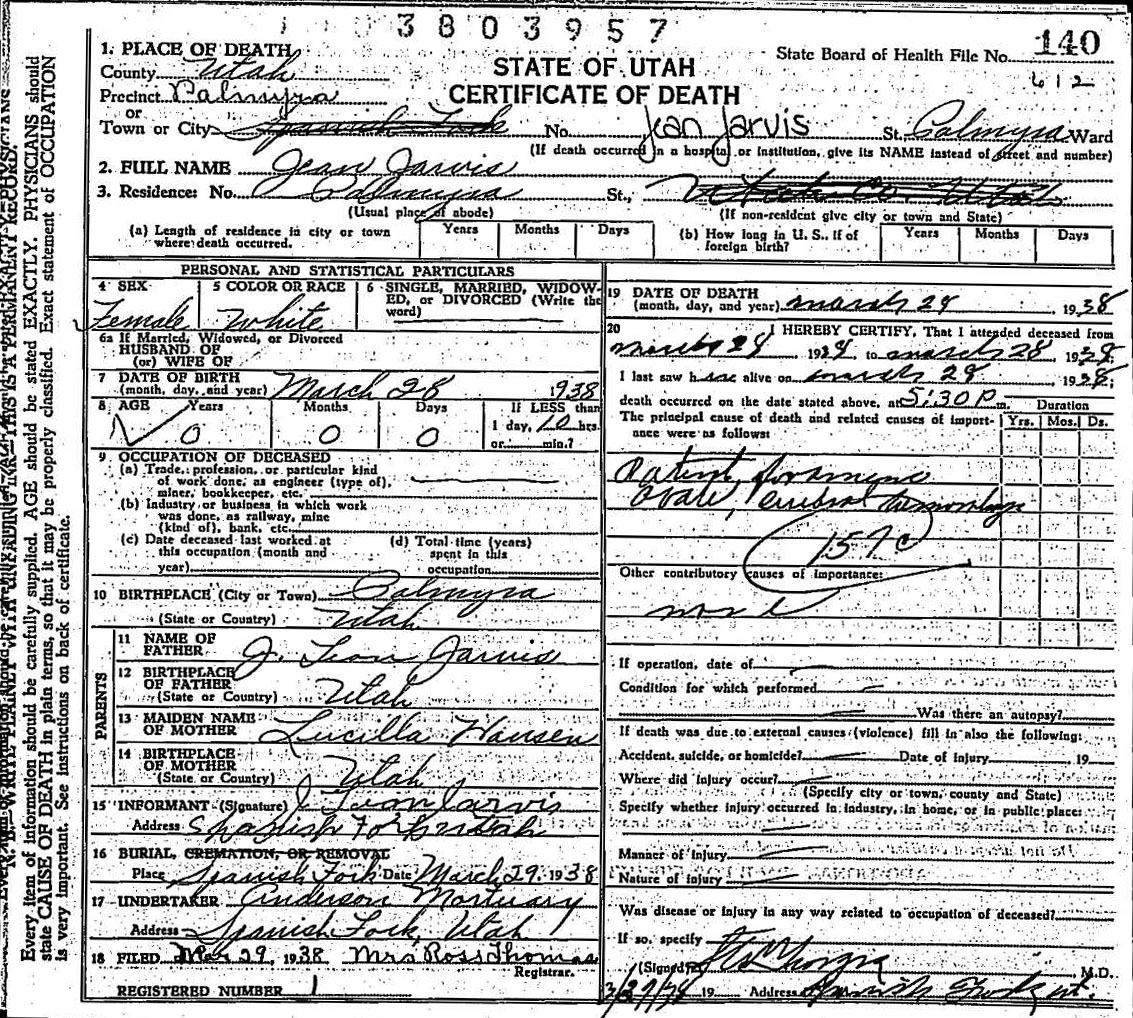 3803957
State Board of Health File No. 140
612
STATE OF UTAH
CERTIFICATE OF DEATH
1. PLACE OF DEATH
County Utah
Precinct Palmyra
or
Town or City Spanish Fork No. Jean Jarvis St. Palmyra Ward
(If death occurred in a hospital or institution, give its NAME instead of street and number)
2. FULL NAME Jean Jarvis
3. Residence: No. Palmyra St., Utah Co. Utah
(Usual place of abode) (If non-resident give city or town and State)
(a) Length of residence in city or town where death occurred. Years Months Days
(b) How long in U. S., if of foreign birth? Years Months Days
PERSONAL AND STATISTICAL PARTICULARS
4 SEX Female
5 COLOR OR RACE White
6 SINGLE, MARRIED, WIDOWED, or DIVORCED (Write the word)
6a If Married, Widowed, or Divorced
HUSBAND OF
(or) WIFE OF
7 DATE OF BIRTH
(month, day, and year) March 28 1938
8 AGE Years 0 Months 0 Days 0 If LESS than 1 day, 10 hrs. or min.?
9 OCCUPATION OF DECEASED
(a) Trade, profession, or particular kind
of work done, as engineer (type of),
miner, bookkeeper, etc.
(b) Industry or business in which work
was done, as railway, mine
(kind of), bank, etc.
(c) Date deceased last worked at
this occupation (month and
year)
(d) Total time (years)
spent in this
occupation
10 BIRTHPLACE (City or Town) Palmyra
(State or Country) Utah
PARENTS
11 NAME OF FATHER J. Leon Jarvis
12 BIRTHPLACE OF FATHER
(State or Country) Utah
13 MAIDEN NAME OF MOTHER Lucilla Hansen
14 BIRTHPLACE OF MOTHER
(State or Country) Utah
15 INFORMANT (Signature) J Leon Jarvis
Address Spanish Fork Utah
16 BURIAL, CREMATION, OR REMOVAL
Place Spanish Fork Date March 29, 1938
17 UNDERTAKER Anderson Mortuary
Address Spanish Fork, Utah
18 FILED Mar 29, 1938 Mrs Ross Thomas
Registrar.
REGISTERED NUMBER 1
19 DATE OF DEATH
(month, day, and year) March 28, 1938
20 I HEREBY CERTIFY, That I attended deceased from
March 28 1938, to March 28, 1938;
I last saw h alive on March 28, 1938;
death occurred on the date stated above, at 5:30 P m.
Duration
Yrs. Mos. Ds.
The principal cause of death and related causes of importance were as follows:
Patent foramena
Ovale, cerebral hemorrhage
157c
Other contributory causes of importance:
none
If operation, date of
Condition for which performed
Was there an autopsy?
If death was due to external causes (violence) fill in also the following:
Accident, suicide, or homicide? Date of injury 19
Where did injury occur?
(Specify city or town, county and State)
Specify whether injury occurred in industry, in home, or in public place:
Manner of injury
Nature of injury
Was disease or injury in any way related to occupation of deceased?
If so, specify
(Signed) M.D.
3/29/38 19 Address Spanish Fork, Ut.
Every item of information should be carefully supplied. AGE should be stated EXACTLY. PHYSICIANS should
state CAUSE OF DEATH in plain terms, so that it may be properly classified. Exact statement of OCCUPATION
is very important. See instructions on back of certificate.